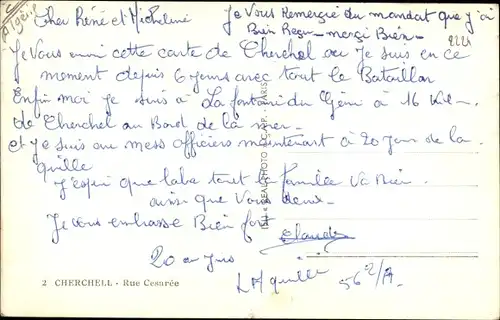 Algérie
Cher Réné et Micheline
Je Vous Remercie du mandat que j'ai
Bien Reçu - merçi Bien -
Je Vous envoi cette carte de Cherchel ou je suis en ce
moment depuis 6 jours avec tout le Bataillon
Enfin moi je suis à La fontaine du Géni à 16 Kil -
de Cherchel au Bord de la mer -
et je suis au mess officiers maintenant à 20 jour de la
quille
J'espère que laba toute la famille Va Bien -
ainsi que Vous deux -
Je vous embrasse Bien fort
Claude
20 au jus
La quille 56 2/A.
2 CHERCHELL - Rue Cesarée